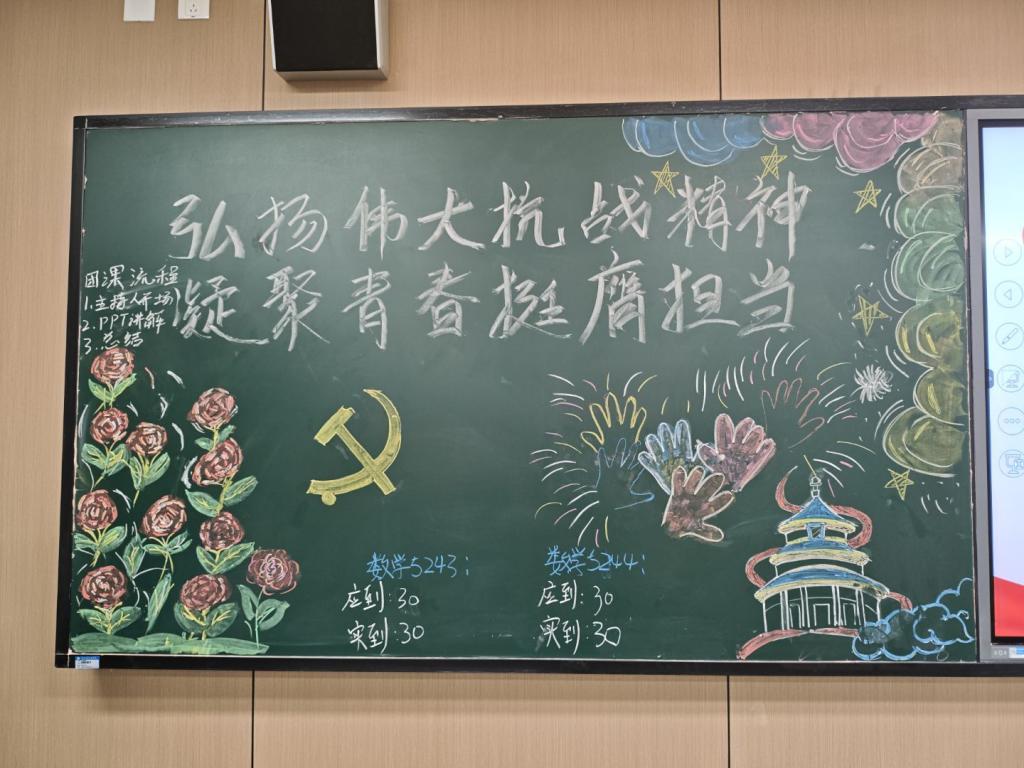 弘扬伟大抗战精神
凝聚青春挺膺担当
团课流程
1.主持人开场
2.PPT讲解
3.总结
数学5243:
应到:30
实到:30
数学5244:
应到:30
实到:30